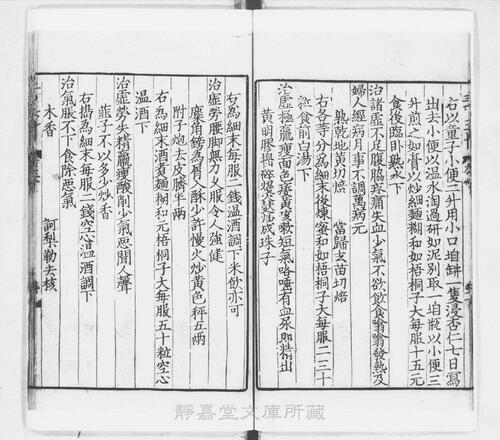 右以童子小便二升用小口垍缾一隻浸杏仁七日寫
出去小便以温水淘過研如泥别取一垍瓶以小便三
升煎之如膏以炒細麵糊和如梧桐子大每服十五元
食後臨卧熟水下
治諸虚不足腹脇疼痛失血少氣不欲飲食嗡嗡發熱及
婦人經病月事不調萬病元
熟乾地黄切焙　當歸去苗切焙
右各等分為細末後煉蜜和如梧桐子大每服二三十
粒食前白湯下
治虚極羸瘦面色痿黄寒嗽短氣咯唾有血尿即精出
黄明膠
成珠子
右為細末每服二錢温酒調下米飲亦可
治虚勞腰脚無力又服令人強健
麋角鎊為屑入酥少許慢火炒黄色秤五兩
附子炮去皮臍半兩
右為細末酒煮麵糊和元梧桐子大每服五十粒空心
温酒下
治虚勞失精羸瘦酸削少氣惡聞人聲
韮子不以多少炒香
右擣為細末每服二錢空心温酒調下
治氣脹不下食除惡氣
木香　訶梨勒去核
靜嘉堂文庫所藏